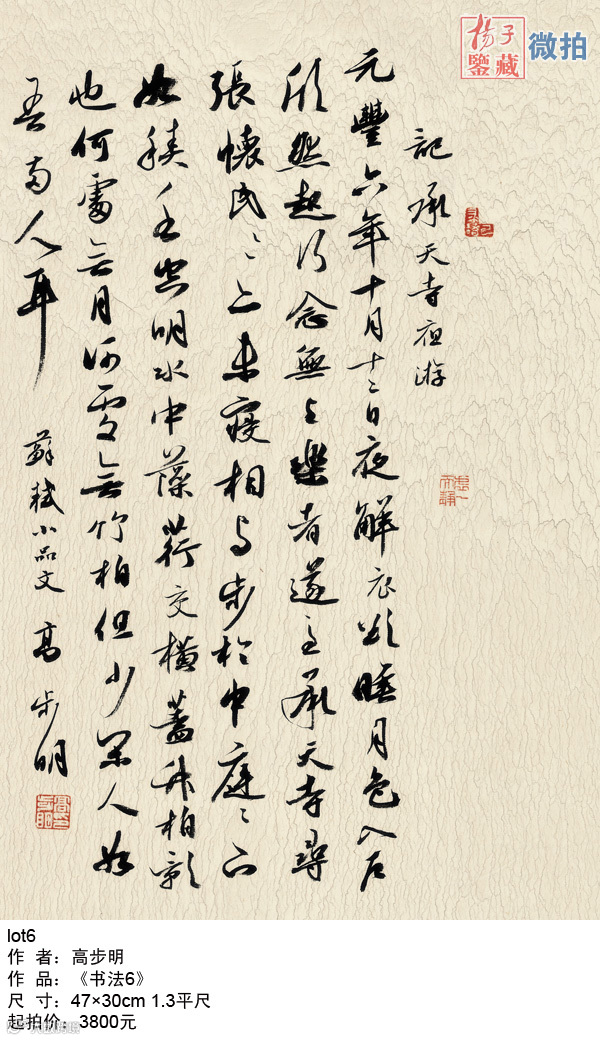 揚子
鑒藏
微拍
記承天寺夜游
元豐六年十月十二日夜解衣欲睡月色入户
欣然起行念無与樂者遂至承天寺尋
張懷民〻亦未寢相与步於中庭〻下
如積水空明水中藻荇交橫蓋竹柏影
也何處無月何處無竹柏但少閑人如
吾兩人耳
蘇軾小品文 高步明
lot6
作 者：高步明
作 品：《书法6》
尺 寸：47×30cm 1.3平尺
起拍价：3800元